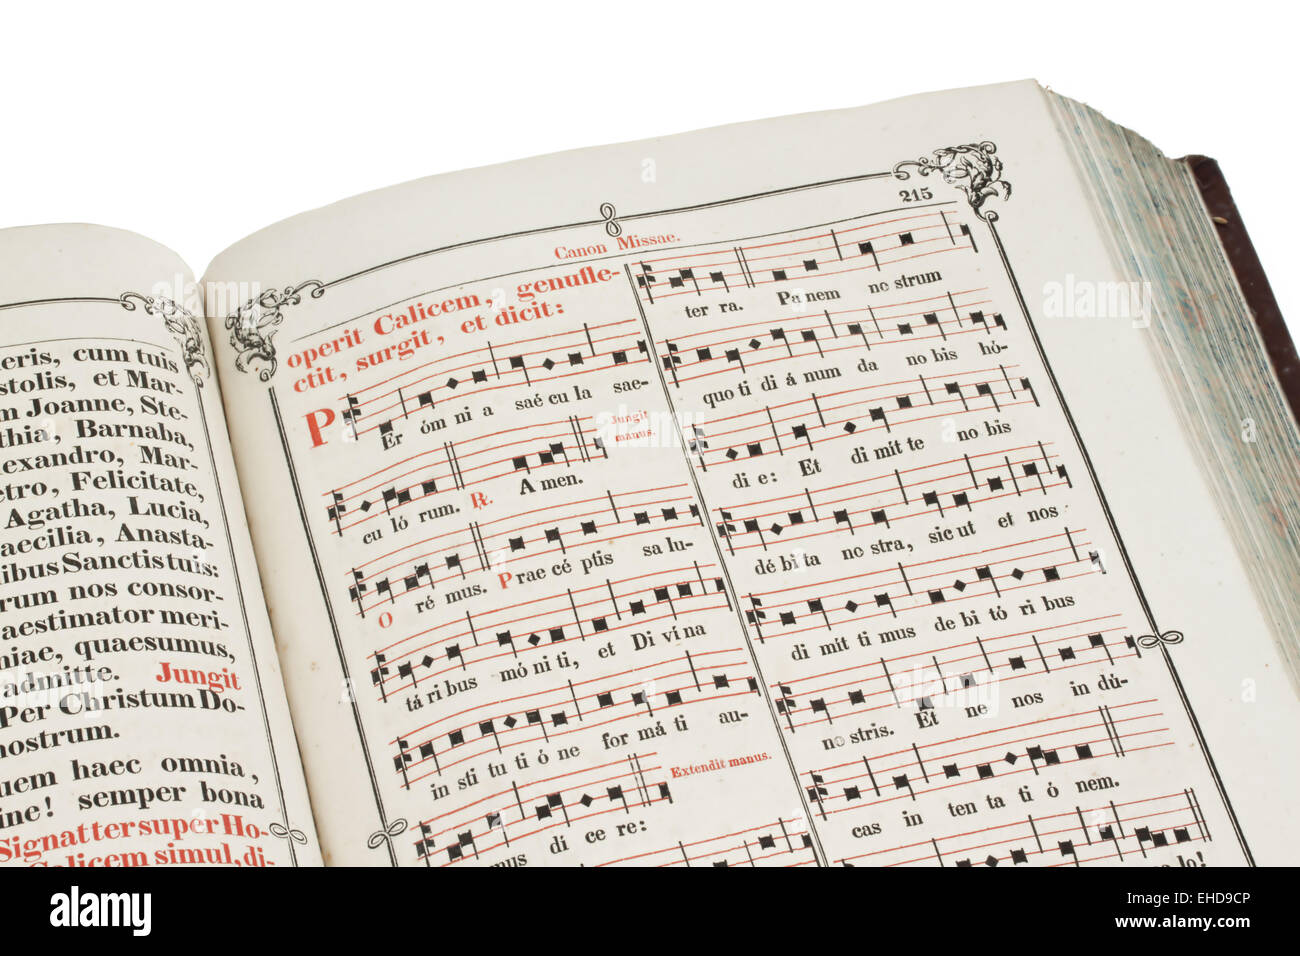 eris, cum tuis
stolis, et Mar-
m Joanne, Ste-
thia, Barnaba,
lexandro, Mar-
etro, Felicitate,
Agatha, Lucia,
aecilia, Anasta-
libus Sanctis tuis:
rum nos consor-
aestimator meri-
niae, quaesumus,
admitte. Jungit
Per Christum Do-
nostrum.
uem haec omnia,
ine! semper bona
Signat ter super Ho-
Calicem simul, di-
215
Canon Missae.
operit Calicem, genufle-
ctit, surgit, et dicit:
PEr óm ni a saé cu la sae-
cu ló rum. ℟. A men. Jungit manus.
O ré mus. Prae cé ptis sa lu-
tá ri bus mó ni ti, et Di ví na
in sti tu ti ó ne for má ti au-
mus di ce re: Extendit manus.
ter ra. Pa nem no strum
quo ti di á num da no bis hó-
di e: Et di mít te no bis
dé bi ta no stra, sic ut et nos
di mít ti mus de bi tó ri bus
no stris. Et ne nos in dú-
cas in ten ta ti ó nem.
a lo!
alamy
Image ID: EHD9CP
www.alamy.com